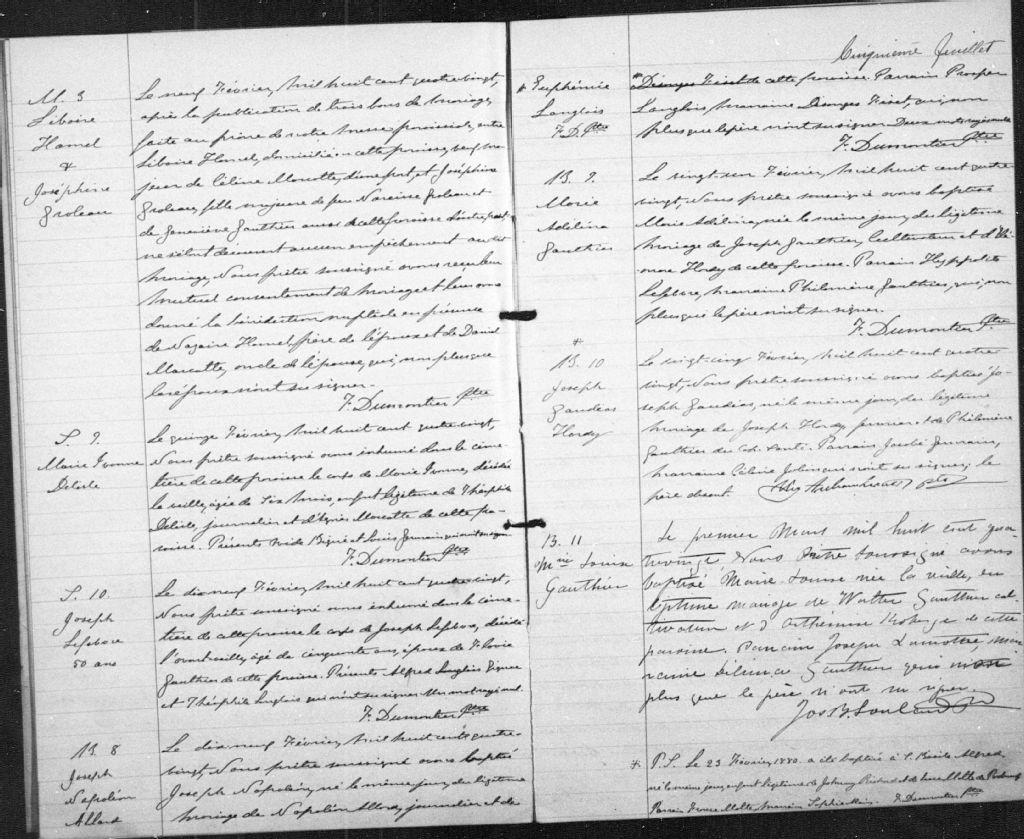 M. 3
Liboire
Hamel
&
Joséphine
Groleau
Le neuf Février, mil huit cent quatre vingt,
après la publication de trois bans de mariage,
faite au prône de notre messe paroissiale, entre
Liboire Hamel, domicilié en cette paroisse,
jeur de Céline Marcotte, d'une part, et Joséphine
Groleau, fille majeure de feu Nazaire Groleau et
de Geneviève Gauthier aussi de cette paroisse d'autre part,
ne s'étant découvert aucun empêchement au dit
mariage, Nous prêtre soussigné avons reçu leur
mutuel consentement de mariage et leur avons
donné la bénédiction nuptiale en présence
de Nazaire Hamel, frère de l'époux et de Daniel
Marcotte, oncle de l'épouse, qui, non plus que
les époux n'ont su signer.
F. Dumontier Ptre
S. 9.
Marie Ivonne
Delisle
Le quinze Février, mil huit cent quatre vingt,
Nous prêtre soussigné avons inhumé dans le cime-
tière de cette paroisse le corps de Marie Ivonne, décédée
la veille, âgée de six mois, enfant légitime de Théophile
Delisle, journalier et d'Agnès Marcotte de cette pa-
roisse. Présents et Louis Germain qui n'ont su signer
F. Dumontier Ptre
S. 10.
Joseph
Lefebvre
50 ans
Le dix neuf Février, mil huit cent quatre vingt,
Nous prêtre soussigné avons inhumé dans le cime-
tière de cette paroisse le corps de Joseph Lefebvre, décédé
l'avant veille, âgé de cinquante ans, époux de Flavie
Gauthier de cette paroisse. Présents Alfred Langlois
et Théophile Langlois qui n'ont su signer. Un mot rayé nul.
F. Dumontier Ptre
B. 8
Joseph
Napoléon
Allard
Le dix neuf Février, mil huit cent quatre-
vingt, Nous prêtre soussigné avons baptisé
Joseph Napoléon, né le même jour, du légitime
mariage de Napoléon Allard, journalier et de
Cinquième feuillet
* Euphémie
Langlois
F. D. Ptre
* Désanges de cette paroisse. Parrain Prosper
Langlois, marraine Désanges qui, non
plus que le père n'ont su signer. Deux mots rayés nuls
F. Dumontier Ptre
B. 9.
Marie
Adélina
Gauthier
Le vingt-un Février, mil huit cent quatre-
vingt, Nous prêtre soussigné avons baptisé
Marie Adélina, née le même jour, du légitime
mariage de Joseph Gauthier, Cultivateur et d'
Hardy de cette paroisse. Parrain Hyppolite
Lefebvre, marraine Philomène Gauthier, qui, non
plus que le père n'ont su signer.
F. Dumontier Ptre
*
B. 10
Joseph
Gaudias
Hardy
Le vingt-cinq Février, mil huit cent quatre
vingt, Nous prêtre soussigné avons baptisé Jo-
seph Gaudias, né le même jour, du légitime
mariage de Joseph Hardy, et de Philomène
Gauthier du Parrain Germain,
marraine Céline qui n'ont su signer; le
père absent.
B. 11
Mrie Louise
Gauthier
Le premier Mars mil huit cent qua-
trevingt, Nous Prêtre soussigné avons
baptisé Marie Louise née la veille, du
légitime mariage de Walter Gauthier cul-
tivateur et d'Arthémise de cette
paroisse. Parrain Joseph Lamothe, mar-
raine Gauthier qui non
plus que le père n'ont su signer.
* P.S. Le 23 Février 1880. a été baptisé
né le même jour, enfant légitime de Johnny
Parrain marraine F. Dumontier Ptre